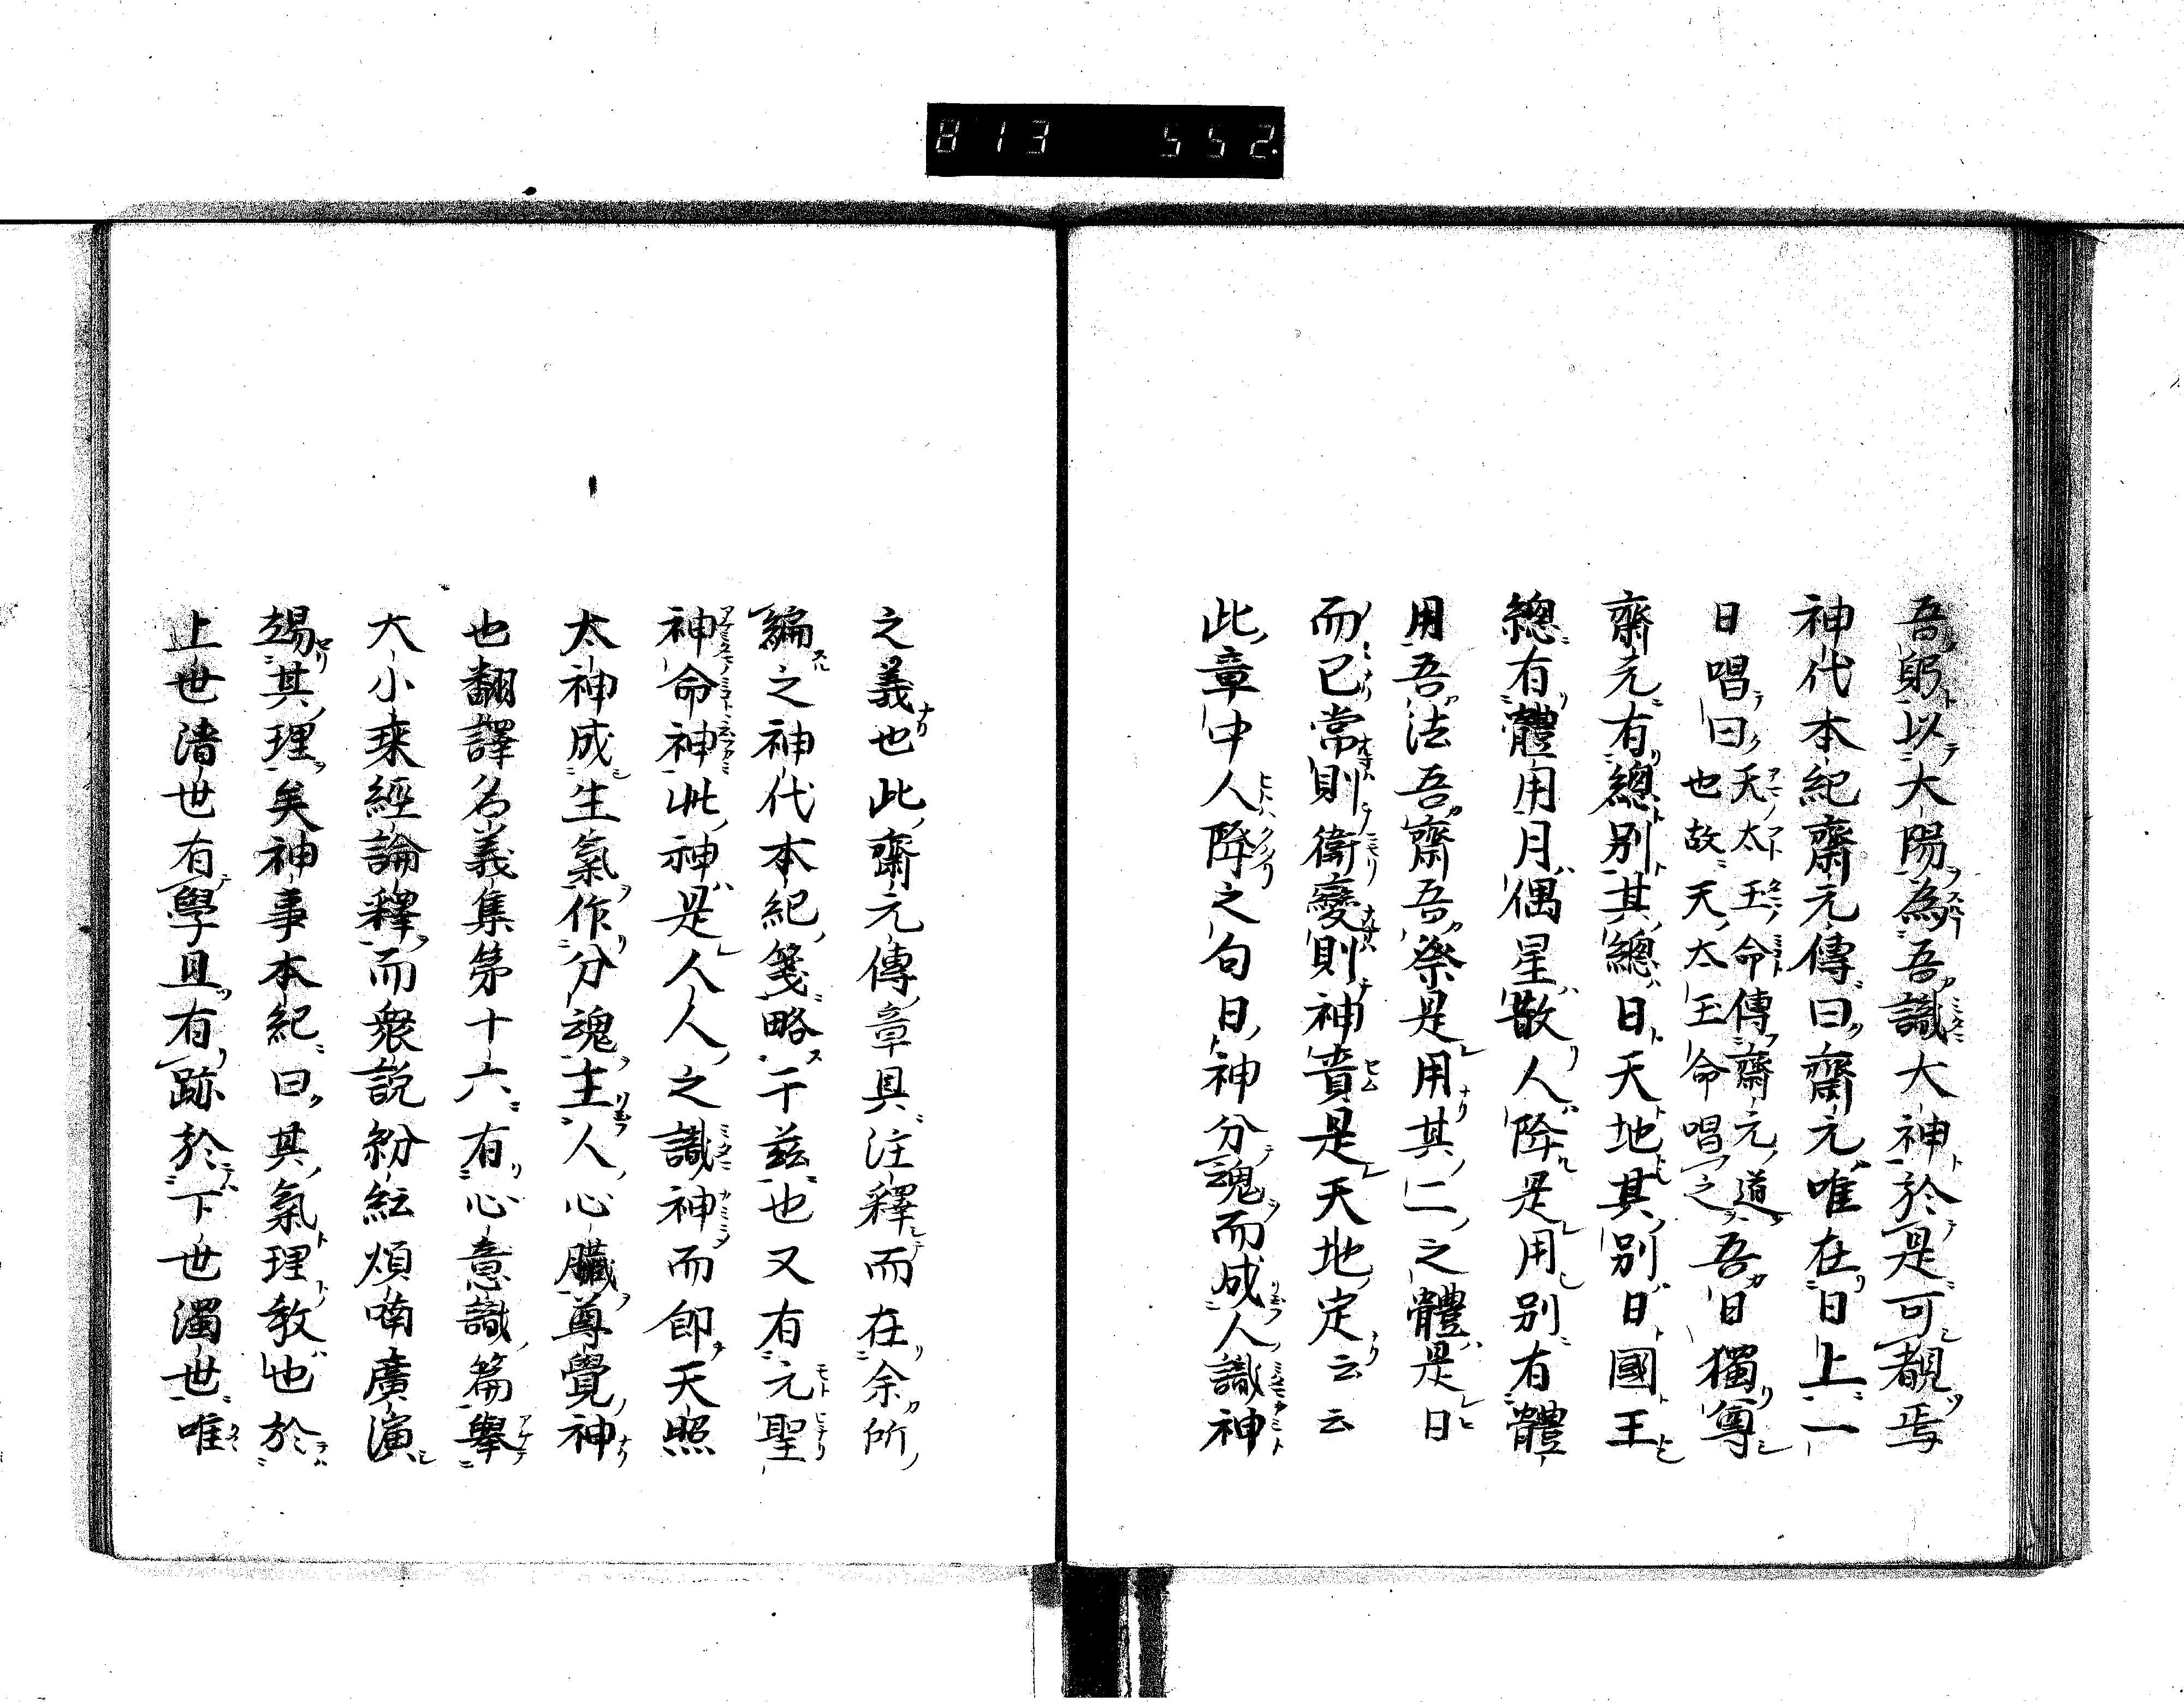 813 552.
吾躬以大陽為吾識大神於是可覩焉
神代本紀齋元傳曰齋元唯在日上一
日唱曰天太玉命傳齋元道也故天太玉命唱之吾日獨尊
齋元有總別其總日天地其別日國王
總有體用月偶星散人降是用別有體
用吾法吾齋吾祭是用其二之體是日
而已常則衛變則神賁是天地定云云
此章中人降之句日神分魂而成人識神
之義也此齋元傳章具注釋而在余所
編之神代本紀箋略于茲也又有元聖
神命神此神是人人之識神而即天照
太神成生氣作分魂主人心臟尊覺神
也翻譯名義集第十六有心意識篇舉
大小乘經論釋而衆說紛紜煩喃廣演
竭其理矣神事本紀曰其氣理教也於
上世濇世有學且有跡於下世濁世唯